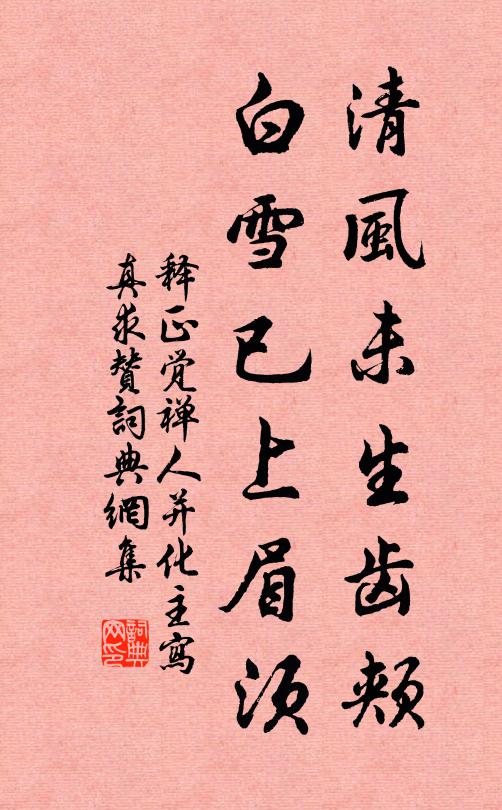 清風未生齿頰
白雪已上眉须
释正觉禅人并化主寫
真求贊詞典網集
詞典
网印